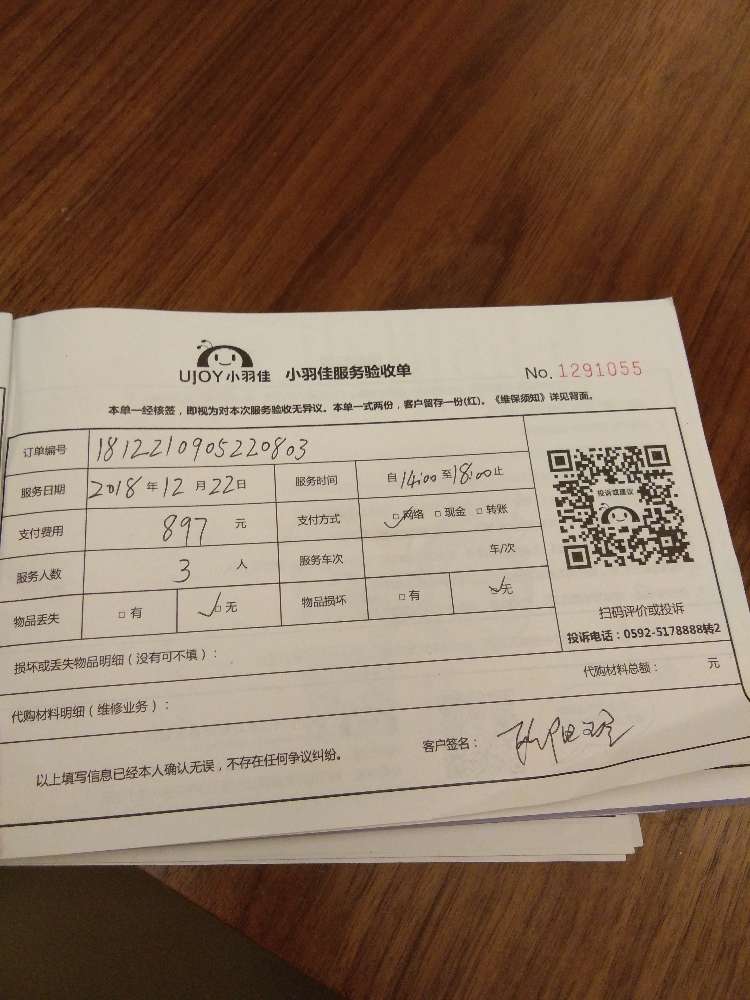 UJOY小羽佳 小羽佳服务验收单 No. 1291055
本单一经核签，即视为对本次服务验收无异议。本单一式两份，客户留存一份(红)。《维保须知》详见背面。
订单编号 1812210905220803
服务日期 2018年12月22日 服务时间 自14:00至18:00止
支付费用 897 元 支付方式 □网络 □现金 □转账
服务人数 3 人 服务车次 车/次
物品丢失 □有 □无 物品损坏 □有 □无
投诉或建议
扫码评价或投诉
投诉电话：0592-5178888转2
损坏或丢失物品明细（没有可不填）：
代购材料明细（维修业务）： 代购材料总额： 元
以上填写信息已经本人确认无误，不存在任何争议纠纷。 客户签名：